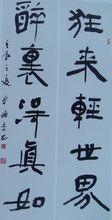 狂来轻世界
醉裏得真如